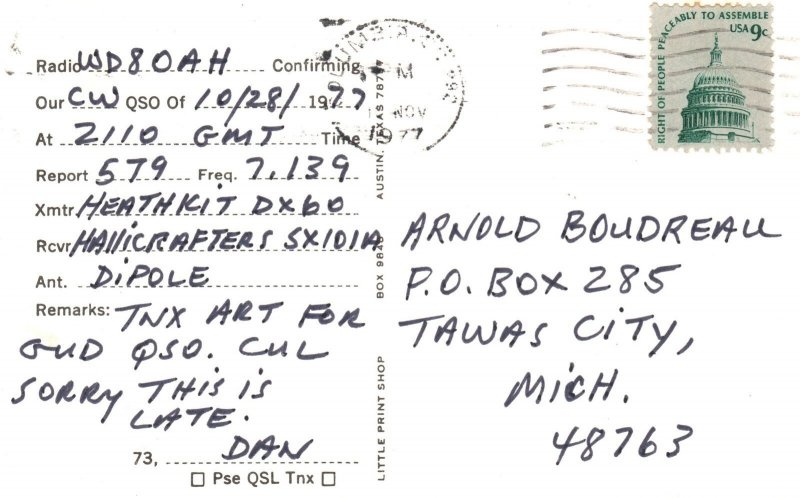 Radio WD8OAH Confirming
Our CW QSO Of 10/28/ 1977
At 2110 GMT Time
Report 579 Freq. 7.139
Xmtr HEATHKIT DX60
Rcvr HALLICRAFTERS SX101A
Ant. DIPOLE
Remarks: TNX ART FOR
GUD QSO. CUL
SORRY THIS IS
LATE.
DAN
73,
□ Pse QSL Tnx □
LITTLE PRINT SHOP BOX 9848 AUSTIN, TEXAS
PM
NOV
77
RIGHT OF PEOPLE PEACEABLY TO ASSEMBLE
USA 9c
ARNOLD BOUDREAU
P.O. BOX 285
TAWAS CITY,
MICH.
48763